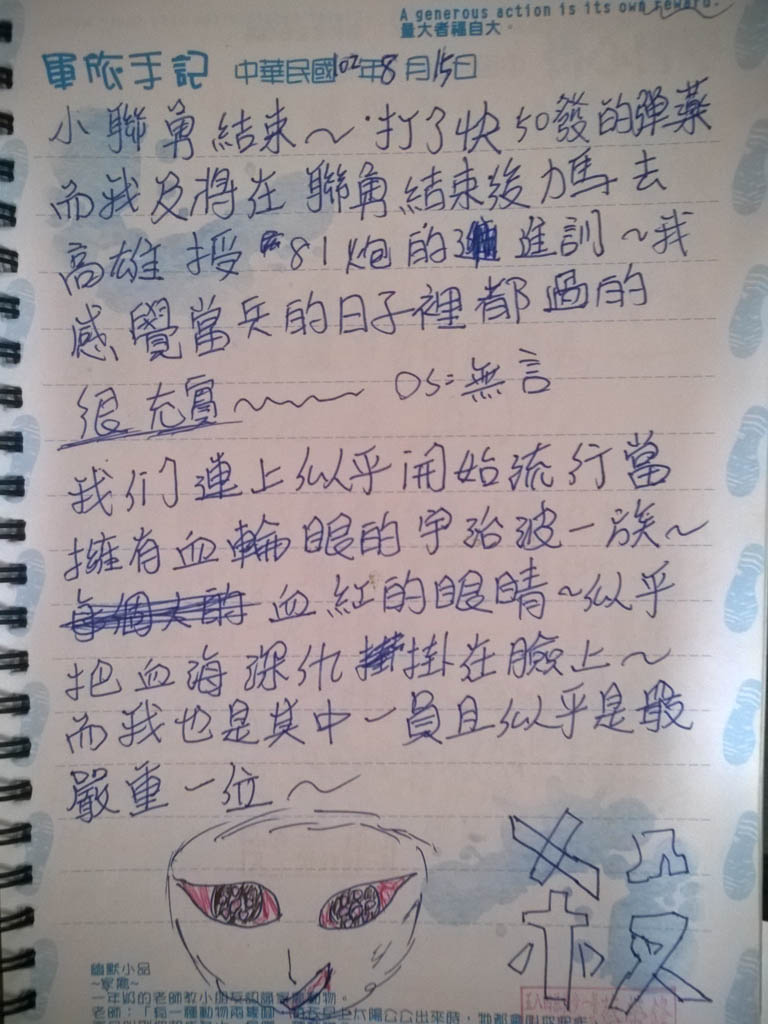 A generous action is its own reward.
量大者福自大。
軍旅手記 中華民國102年8月15日
小聯勇結束～打了快50發的彈藥
而我及將在聯勇結束後馬去
高雄授 81炮的進訓～我
感覺當兵的日子裡都過的
很充實～～～ OS:無言
我们連上似乎開始流行當
擁有血輪眼的宇治波一族～
血紅的眼睛～似乎
把血海深仇掛在臉上～
而我也是其中一員且似乎是最
嚴重一位～
幽默小品
~家禽~
一年級的老師教小朋友認識家禽動物。
老師：「有一種動物兩隻腳，